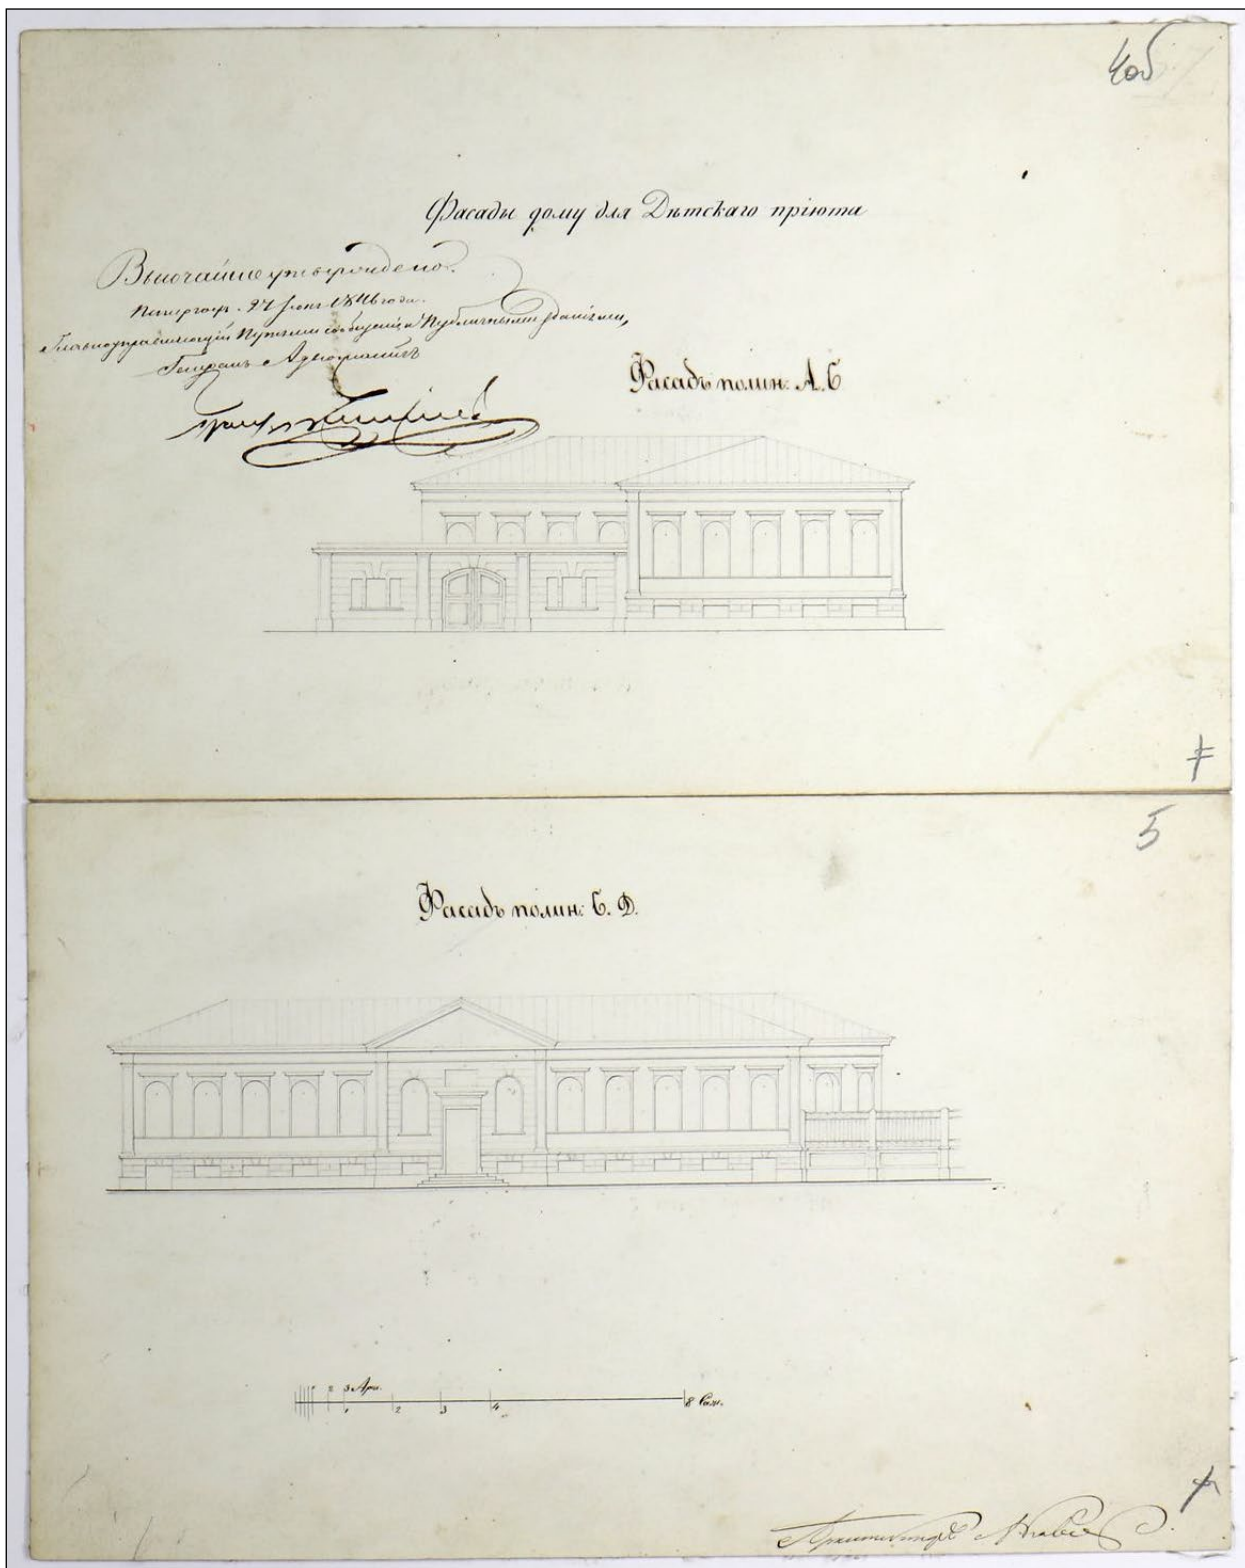 4об
Фасады дому для Дѣтскаго пріюта
Высочайше утверждено.
Петергоф. 27 1846 года.
Главноуправляющій Путями сообщенія и Публичными зданіями,
Генералъ Адъютантъ
Фасадъ по лин: А. Б
5
Фасадъ по лин: Б. Д.
2 3 Арш.
1 2 3 4 8 Саж.
Архитекторъ